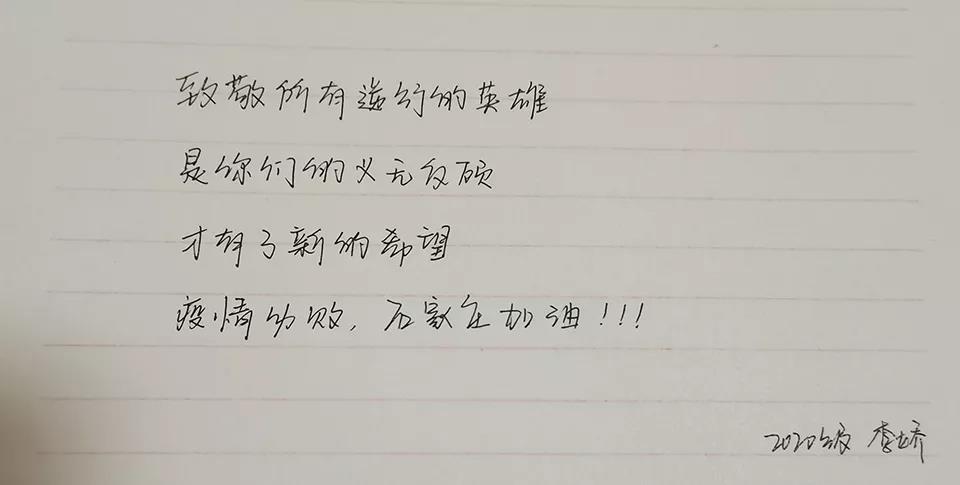 致敬所有逆行的英雄
是你们的义无反顾
才有了新的希望
疫情必败，石家庄加油！！！
2020级 李娇